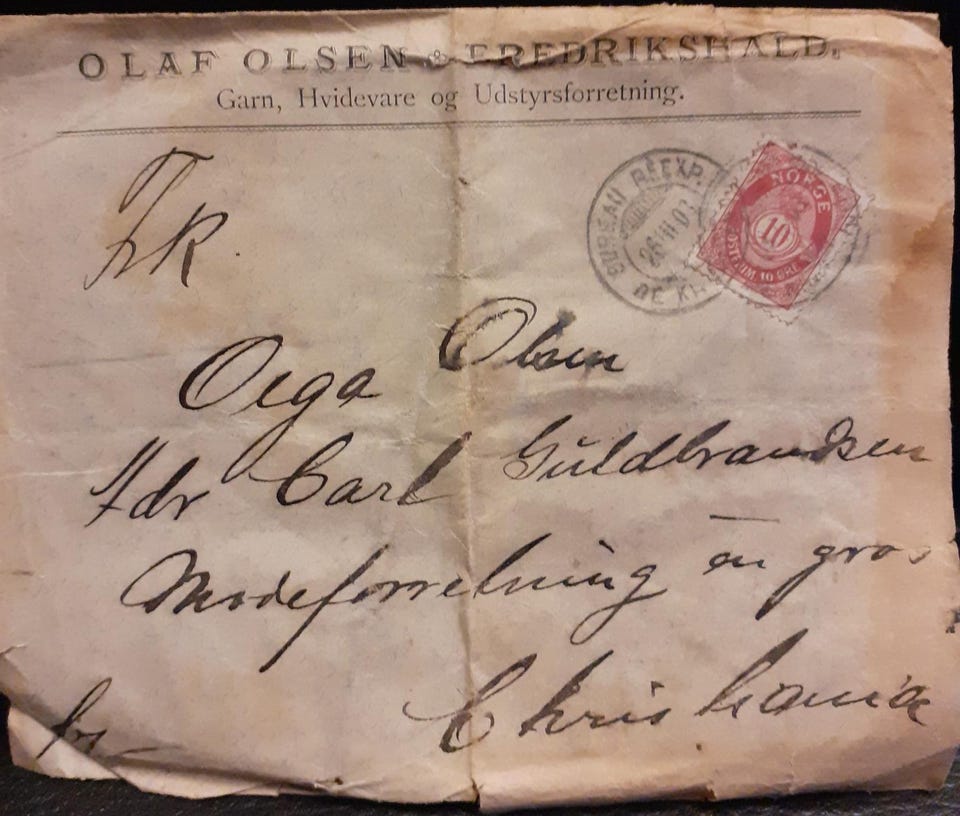 OLAF OLSEN & FREDRIKSHALD.
Garn, Hvidevare og Udstyrsforretning.
BUREAU RÉEXP.
26 III 03
DE KR
NORGE
10
POSTFRIM 10 ØRE
Frk.
Olga Olsen
Adr Carl Guldbrandsen
Modeforretning en gros
Christiania